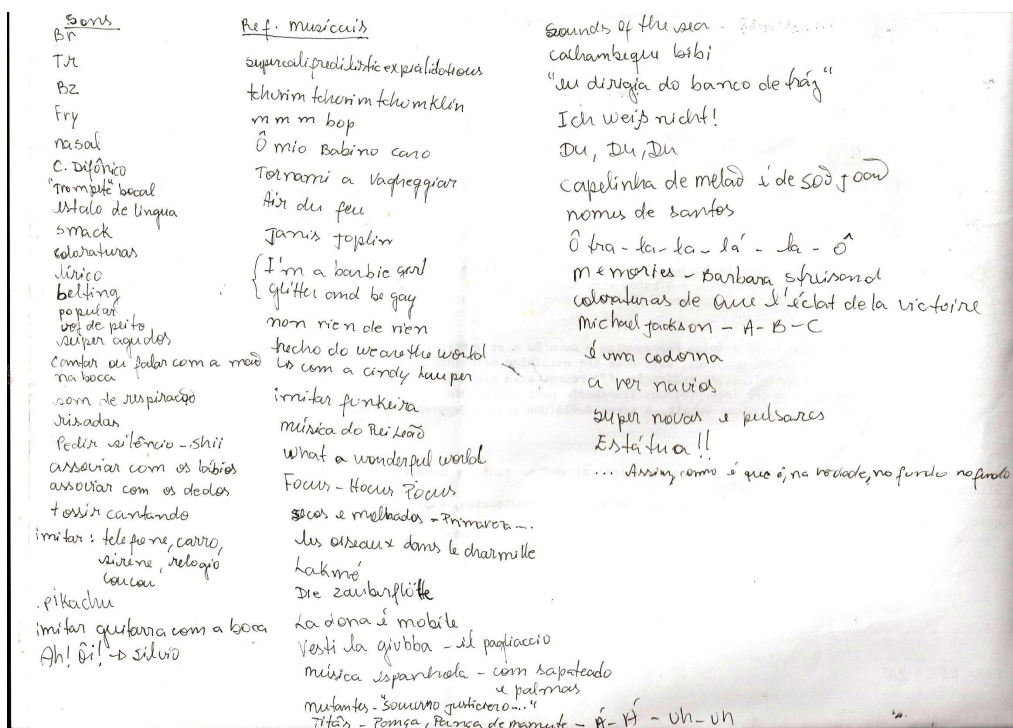 Sons
Br
Tr
Bz
Fry
nasal
C. Difônico
"Trompete" bocal
estalo de lingua
smack
coloraturas
lírico
belting
popular
voz de peito
super agudos
cantar ou falar com a mão
na boca
som de respiração
risadas
Pedir silêncio - shii
associar com os lábios
associar com os dedos
tossir cantando
imitar: telefone, carro,
sirene, relogio
coucou
.pikachu
imitar guitarra com a boca
Ah! Ôi! → silvio
Ref. musicais
supercalifredilisticexpialidotious
tchurim tchurim tchumklin
mmm bop
Ô mio Babino caro
Tornami a vagheggiar
Air du feu
Janis Joplin
I'm a barbie girl
glitter and be gay
non rien de rien
trecho do we are the world
↳ com a cindy lauper
imitar funkeira
música do Rei Leão
what a wonderful world
Focus - Hocus Pocus
secos e molhados - Primavera-...
les oiseaux dans le charmille
Lakmé
Die zauberflötte
La dona é mobile
Vesti la giubba - il pagliaccio
música espanhola - com sapateado
e palmas
mutantes - "... justiceiro..."
Titãs - Pança de mamute - Á-Á - uh-uh
sounds of the sea -
calhambeque bibi
"eu dirigia do banco de tráz"
Ich weiß nicht!
Du, Du, Du
capelinha de melão é de são joão
nomes de santos
Ô tra-la-la-lá-la-ô
memories - Barbara streisand
coloraturas de que l'éclat de la victoire
Michael Jackson - A-B-C
é uma codorna
a ver navios
super novas e pulsares
Estátua!!
... Assim, como é que é, na verdade, no fundo no fundo